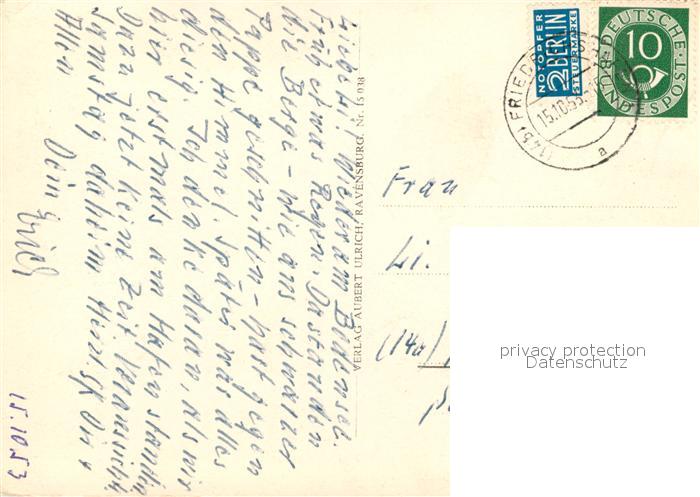 Liebe Li! Wieder am Bodensee.
Früh etwas Regen. Da standen
die Berge - wie aus schwarzer
Pappe geschnitten - hart gegen
den Himmel. Später war alles
diesig. Ich denke daran, als wir
hier erstmals am Hafen standen
Dazu jetzt keine Zeit. Voraussichtl.
Samstag daheim. Herzl. Dir +
Allen
Dein Erich
15.10.53
VERLAG AUBERT ULRICH, RAVENSBURG. Nr. 15 038
NOTOPFER
2 BERLIN
STEUERMARKE
DEUTSCHE
BUNDESPOST
10
(14b) FRIED
15.10.53
a
Frau
Li.
(14a)
privacy protection
Datenschutz